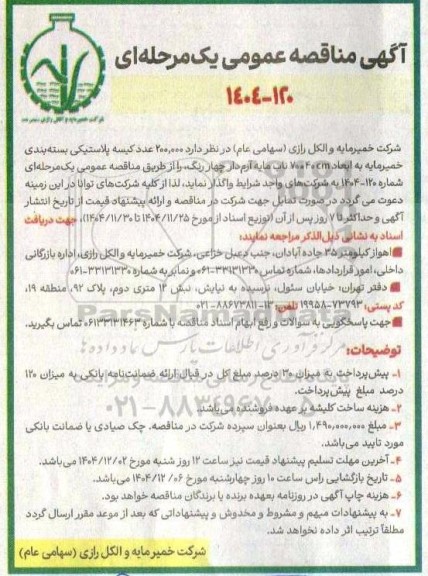 آگهی مناقصه عمومی یک‌مرحله‌ای
۱۴۰۴-۱۲۰
شرکت خمیرمایه و الکل رازی (سهامی عام)
شرکت خمیرمایه و الکل رازی (سهامی عام) در نظر دارد ۲۰۰,۰۰۰ عدد کیسه پلاستیکی بسته‌بندی
خمیرمایه به ابعاد ۷۰×۴۰cm ناب مایه آرم‌دار چهار رنگ، را از طریق مناقصه عمومی یک‌مرحله‌ای
شماره ۱۲۰-۱۴۰۴ به شرکت‌های واجد شرایط واگذار نماید، لذا از کلیه شرکت‌های توانا در این زمینه
دعوت می گردد در صورت تمایل جهت شرکت در مناقصه و ارائه پیشنهاد قیمت از تاریخ انتشار
آگهی و حداکثر تا ۷ روز پس از آن (توزیع اسناد از مورخ ۱۴۰۴/۱۱/۲۵ تا ۱۴۰۴/۱۱/۳۰)، جهت دریافت
اسناد به نشانی ذیل‌الذکر مراجعه نمایند:
اهواز کیلومتر ۳۵ جاده آبادان، جنب دعبل خزاعی، شرکت خمیرمایه و الکل رازی، اداره بازرگانی
داخلی، امور قراردادها، شماره تماس ۳۳۱۳۱۳۳۰-۰۶۱ و نمابر به شماره ۳۳۱۳۱۳۳۰-۰۶۱
دفتر تهران: خیابان سئول، نرسیده به نیایش، نبش ۱۲ متری دوم، پلاک ۹۲، منطقه ۱۹،
کد پستی: ۷۳۷۹۳-۱۹۹۵۸ تلفن: ۱۳-۸۸۶۷۳۸۱۱-۰۲۱
جهت پاسخگویی به سوالات و رفع ابهام اسناد مناقصه با شماره ۰۶۱۳۳۱۳۱۴۶۳ تماس بگیرید.
توضیحات:
۱- پیش‌پرداخت به میزان ۳۰ درصد مبلغ کل در قبال ارائه ضمانت‌نامه بانکی به میزان ۱۲۰
درصد مبلغ پیش‌پرداخت.
۲- هزینه ساخت کلیشه بر عهده فروشنده می‌باشد.
۳- مبلغ ۱,۴۹۰,۰۰۰,۰۰۰ ریال بعنوان سپرده شرکت در مناقصه. چک صیادی یا ضمانت بانکی
مورد تایید می‌باشد.
۴- آخرین مهلت تسلیم پیشنهاد قیمت نیز ساعت ۱۲ روز شنبه مورخ ۱۴۰۴/۱۲/۰۲ می‌باشد.
۵- تاریخ بازگشایی راس ساعت ۱۰ روز چهارشنبه مورخ ۱۴۰۴/۱۲/۰۶ می‌باشد.
۶- هزینه چاپ آگهی در روزنامه بعهده برنده یا برندگان مناقصه خواهد بود.
۷- به پیشنهادات مبهم و مشروط و مخدوش و پیشنهاداتی که بعد از موعد مقرر ارسال گردد
مطلقاً ترتیب اثر داده نخواهد شد.
شرکت خمیرمایه و الکل رازی (سهامی عام)
ParsNamadData
مرکز فرآوری اطلاعات پارس نماد داده‌ها
۰۲۱-۸۸۳۴۹۶۷۰